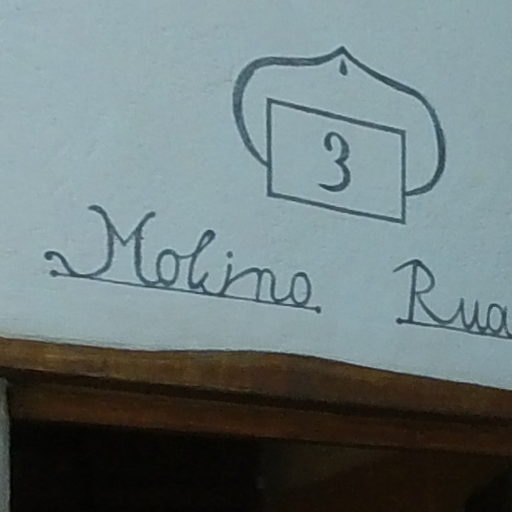 3
Molino Rua